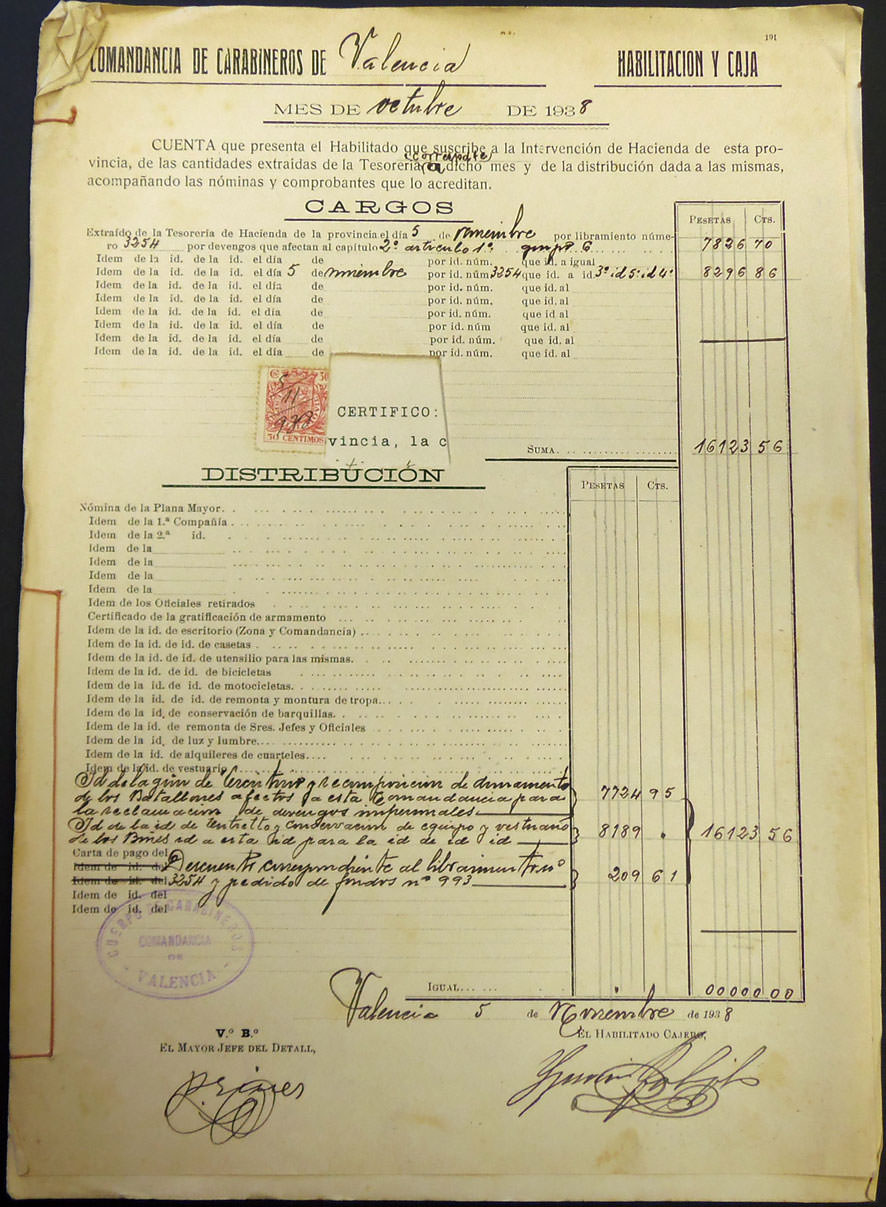 191
COMANDANCIA DE CARABINEROS DE Valencia HABILITACION Y CAJA
MES DE octubre DE 1938
CUENTA que presenta el Habilitado que suscribe a la Intervención de Hacienda de esta pro-
vincia, de las cantidades extraidas de la Tesorería dicho mes y de la distribución dada a las mismas,
acompañando las nóminas y comprobantes que lo acreditan.
CARGOS
PESETAS CTS.
Extraído de la Tesorería de Hacienda de la provincia el día 5 de noviembre por libramiento núme-
ro 3254 por devengos que afectan al capítulo 2º artículo 1º grupº 6 7826 70
Idem de la id. de la id. el día de por id. núm. que id. a igual
Idem de la id. de la id. el día 5 de noviembre por id. núm 3254 que id. a id 3º id 5º id 4º 8296 86
Idem de la id. de la id. el día de por id. núm. que id. al
Idem de la id. de la id. el día de por id. núm. que id. al
Idem de la id. de la id. el día de por id. núm. que id. al
Idem de la id. de la id. el día de por id. núm que id. al
Idem de la id. de la id. el día de por id. núm. que id. al
Idem de la id. de la id. el día de por id. núm. que id. al
50
5/11
938
50 CENTIMOS
CERTIFICO:
vincia, la c
SUMA 16123 56
DISTRIBUCIÓN
PESETAS CTS.
Nómina de la Plana Mayor.
Idem de la 1.ª Compañía
Idem de la 2.ª id.
Idem de la
Idem de la
Idem de la
Idem de la
Idem de los Oficiales retirados
Certificado de la gratificación de armamento
Idem de la id. de escritorio (Zona y Comandancia)
Idem de la id. de id. de casetas
Idem de la id. de id. de utensilio para las mismas.
Idem de la id. de id. de bicicletas
Idem de la id. de id. de motocicletas.
Idem de la id. de id. de remonta y montura de tropa.
Idem de la id. de conservación de barquillas.
Idem de la id. de remonta de Sres. Jefes y Oficiales
Idem de la id. de luz y lumbre.
Idem de la id. de alquileres de cuarteles.
Idem de la id. de vestuario
Id de la gón de Escritorio y recomposicion de armamento
de los Batallones afectos a esta Comandancia para 7724 95
la reclamacion de devengos
Id de la id de Entretto y conservacion de equipo y vestuario
de los Bones id a esta id para la id de id id 8189 . 16123 56
Carta de pago del
Idem de id. del Descuento correspondiente al libramiento nº
Idem de id. del 3254 y pedido de fondos nº 993 209 61
Idem de id. del
Idem de id. del
CUERPO DE CARABINEROS
COMANDANCIA
DE
VALENCIA
IGUAL 000000 00
Valencia 5 de Noviembre de 1938
V.º B.º
EL MAYOR JEFE DEL DETALL,
EL HABILITADO CAJERO,